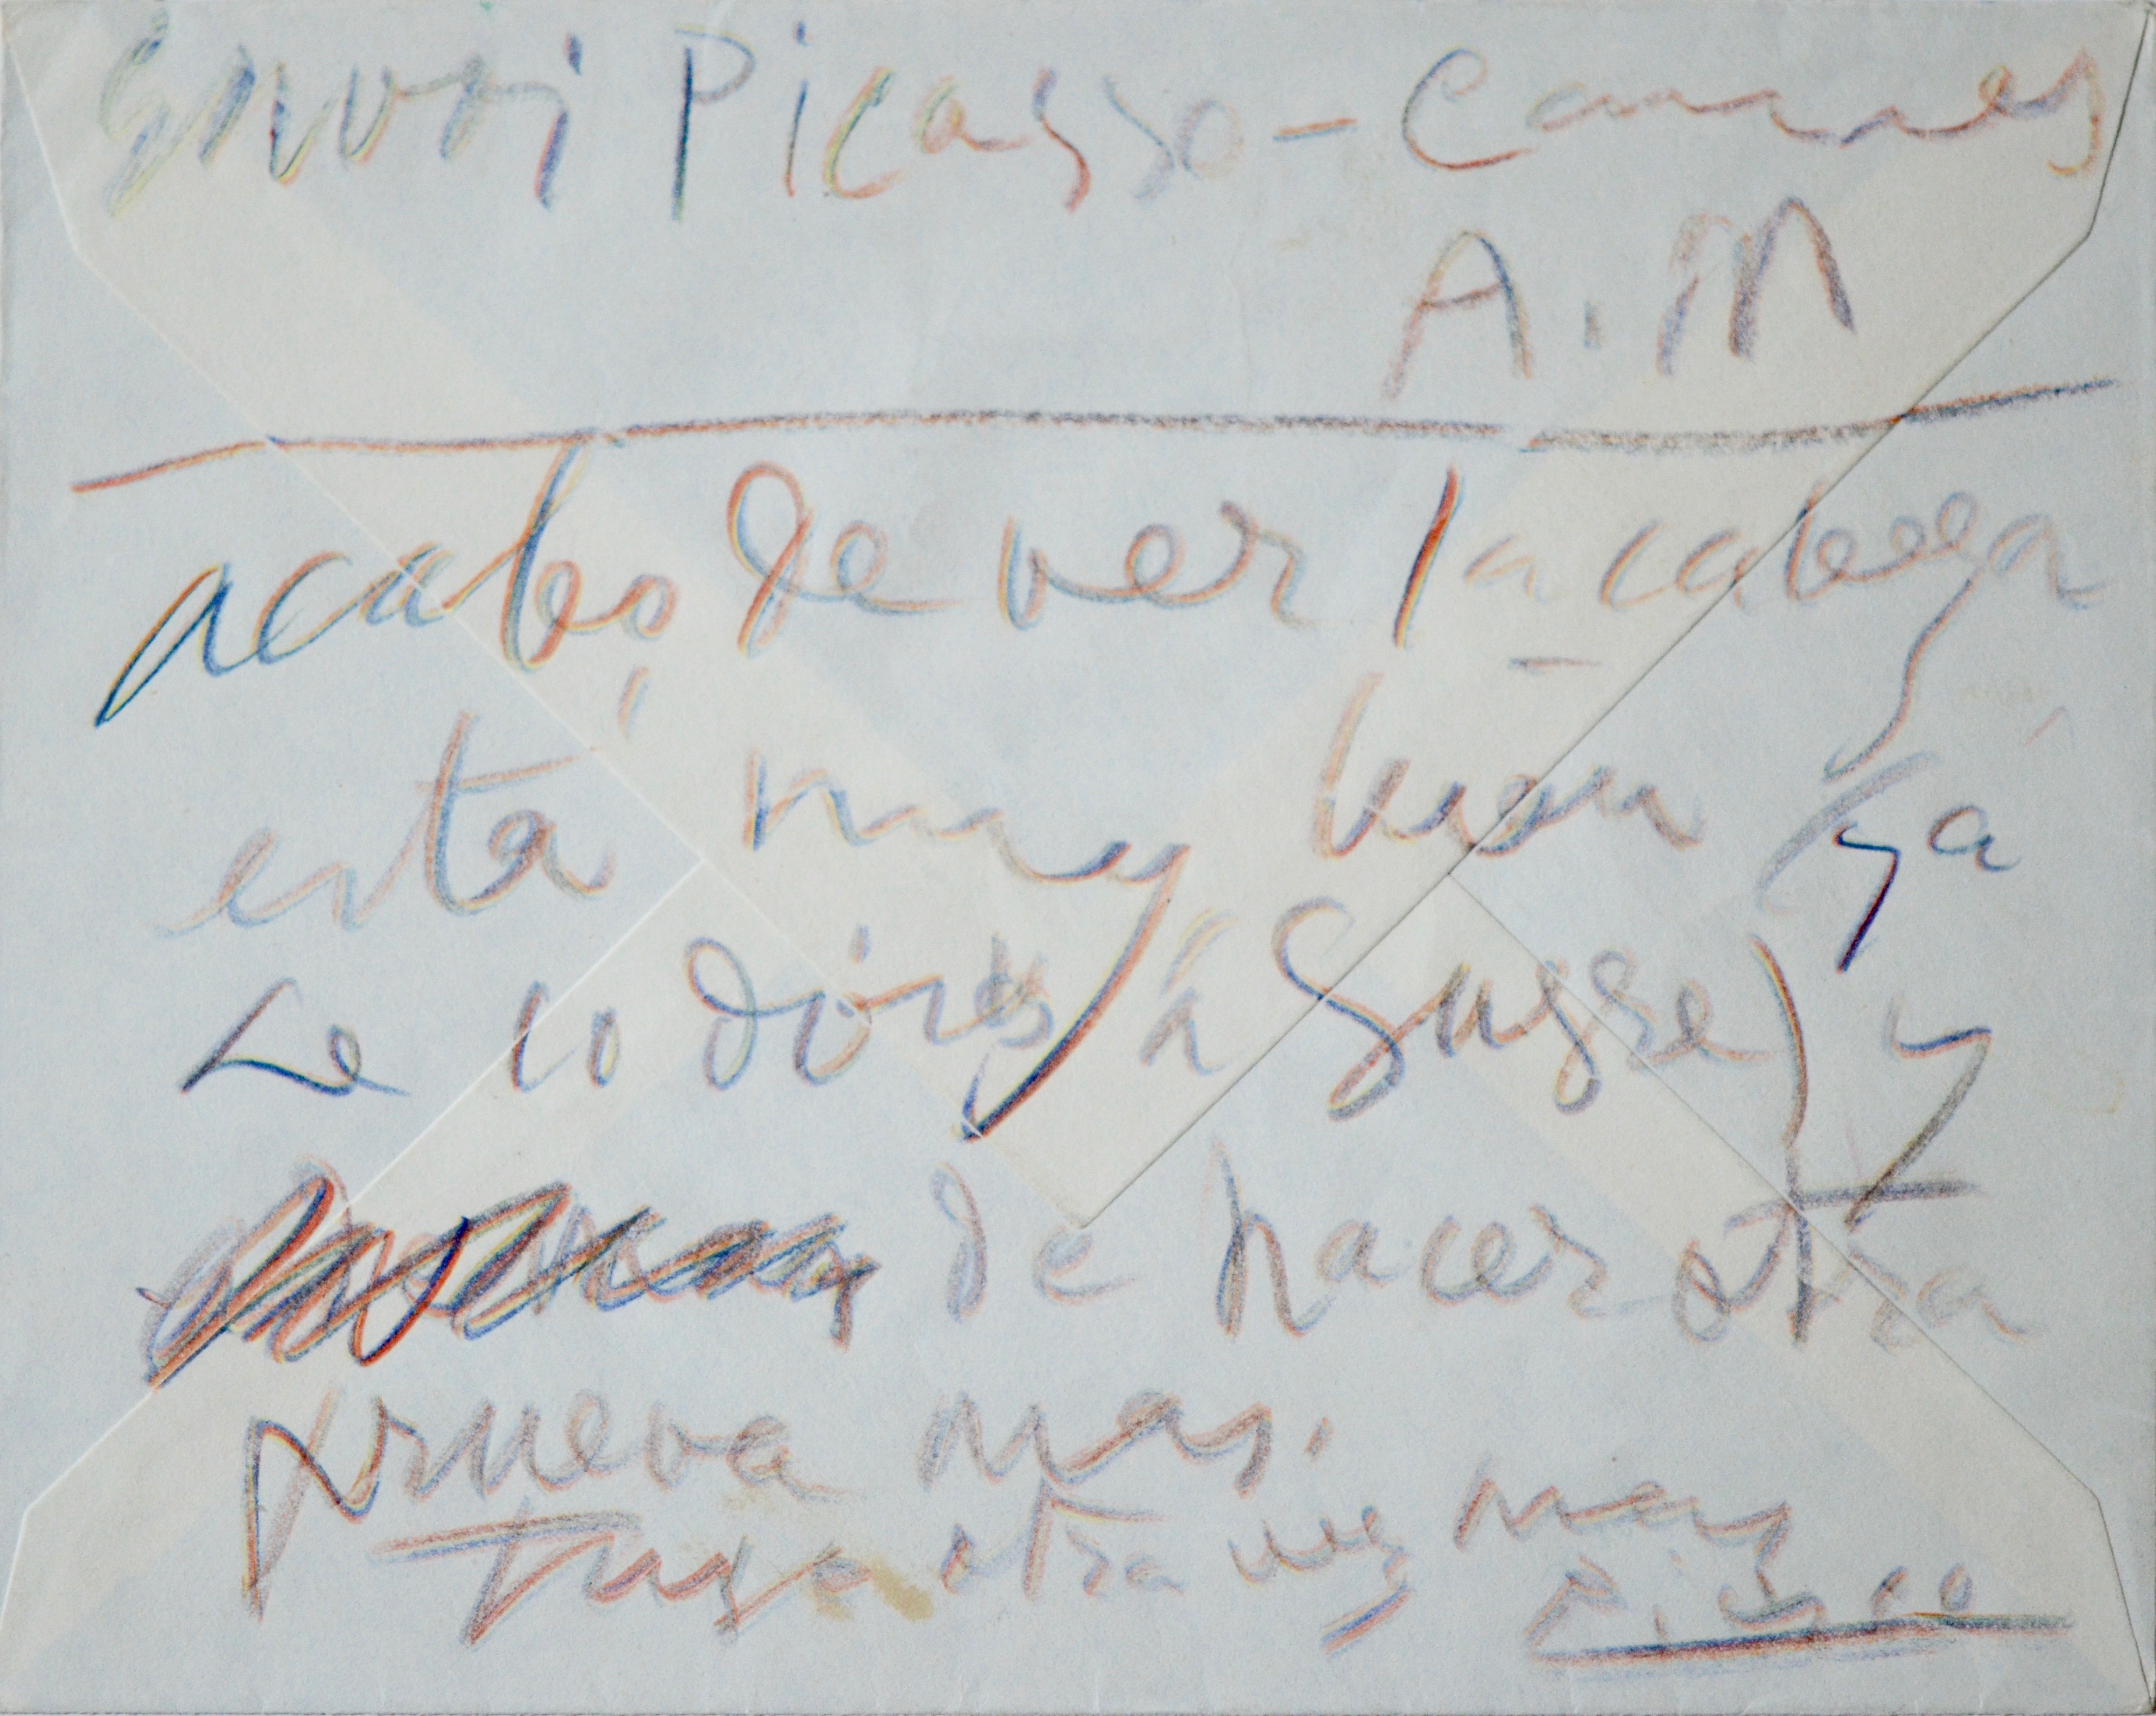 Envoi Picasso - Cannes
A. M
acabo de ver la cabeza
está muy bien ya
se lo dirás á Susse y
de hacer otra
prueva mas.
Tuyo otra vez mas
Picasso